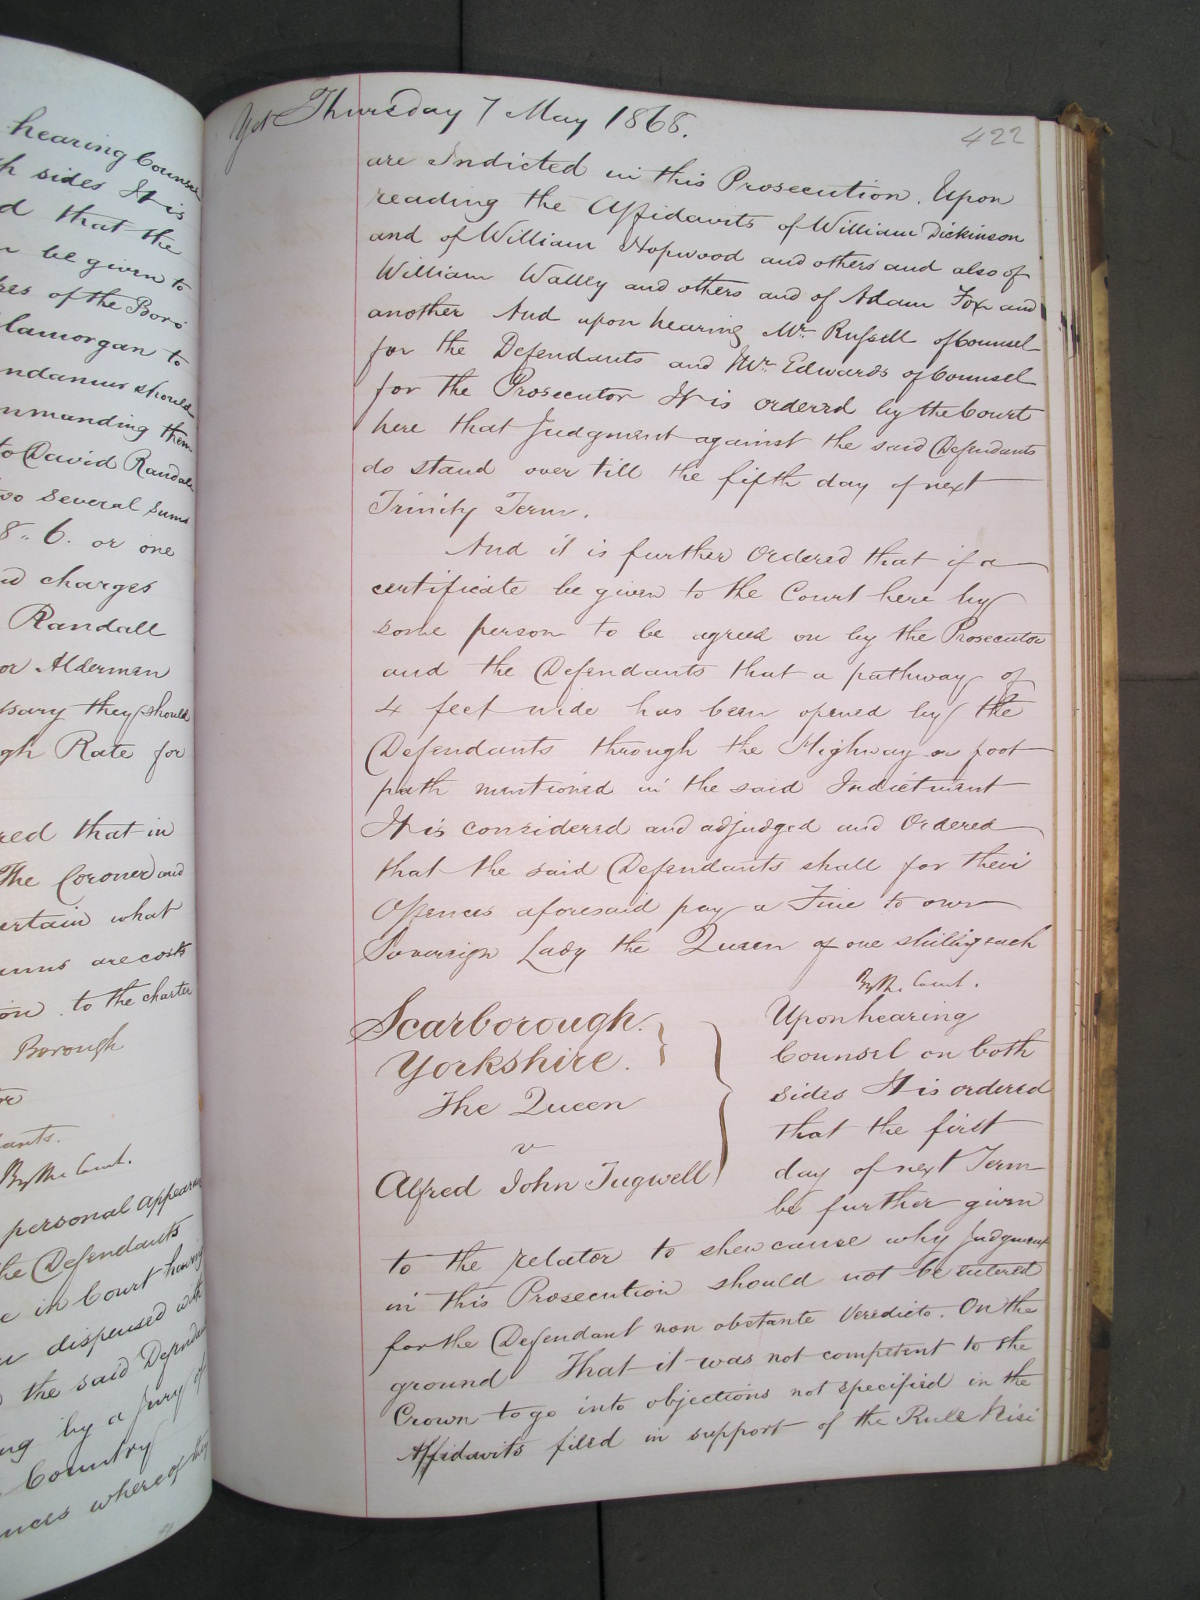 hearing Counsel
sides It is
that the
be given to
of the Boro'
lamorgan to
ndamus should
mmanding them
to David Randall
two several sums
8.. 6. or one
charges
Randall
or Alderman
they should
Rate for
that in
The Coroner and
what
are costs
to the charter
Borough
By the Court.
personal appearance
the Defendants
in Court having
dispensed with
the said Defendants
by a jury of
Country
whereof they
Yet Thursday 7 May 1868.
422
are Indicted in this Prosecution. Upon
reading the Affidavits of William Dickinson
and of William Hopwood and others and also of
William Walley and others and of Adam Fox and
another And upon hearing Mr. Russell of Counsel
for the Defendants and Mr. Edwards of Counsel
for the Prosecutor It is ordered by the Court
here that Judgment against the said Defendants
do stand over till the fifth day of next
Trinity Term.
And it is further Ordered that if a
certificate be given to the Court here by
some person to be agreed on by the Prosecutor
and the Defendants that a pathway of
4 feet wide has been opened by the
Defendants through the Highway or foot
path mentioned in the said Indictment
It is considered and adjudged and Ordered
that the said Defendants shall for their
Offences aforesaid pay a Fine to our
Sovereign Lady the Queen of one shilling each
By the Court.
Scarborough.
Yorkshire.
The Queen
v
Alfred John Tugwell
Upon hearing
Counsel on both
sides It is ordered
that the first
day of next Term
be further given
to the relator to shew cause why Judgment
in this Prosecution should not be entered
for the Defendant non obstante Veredicto. On the
ground That it was not competent to the
Crown to go into objections not specified in the
Affidavits filed in support of the Rule Nisi